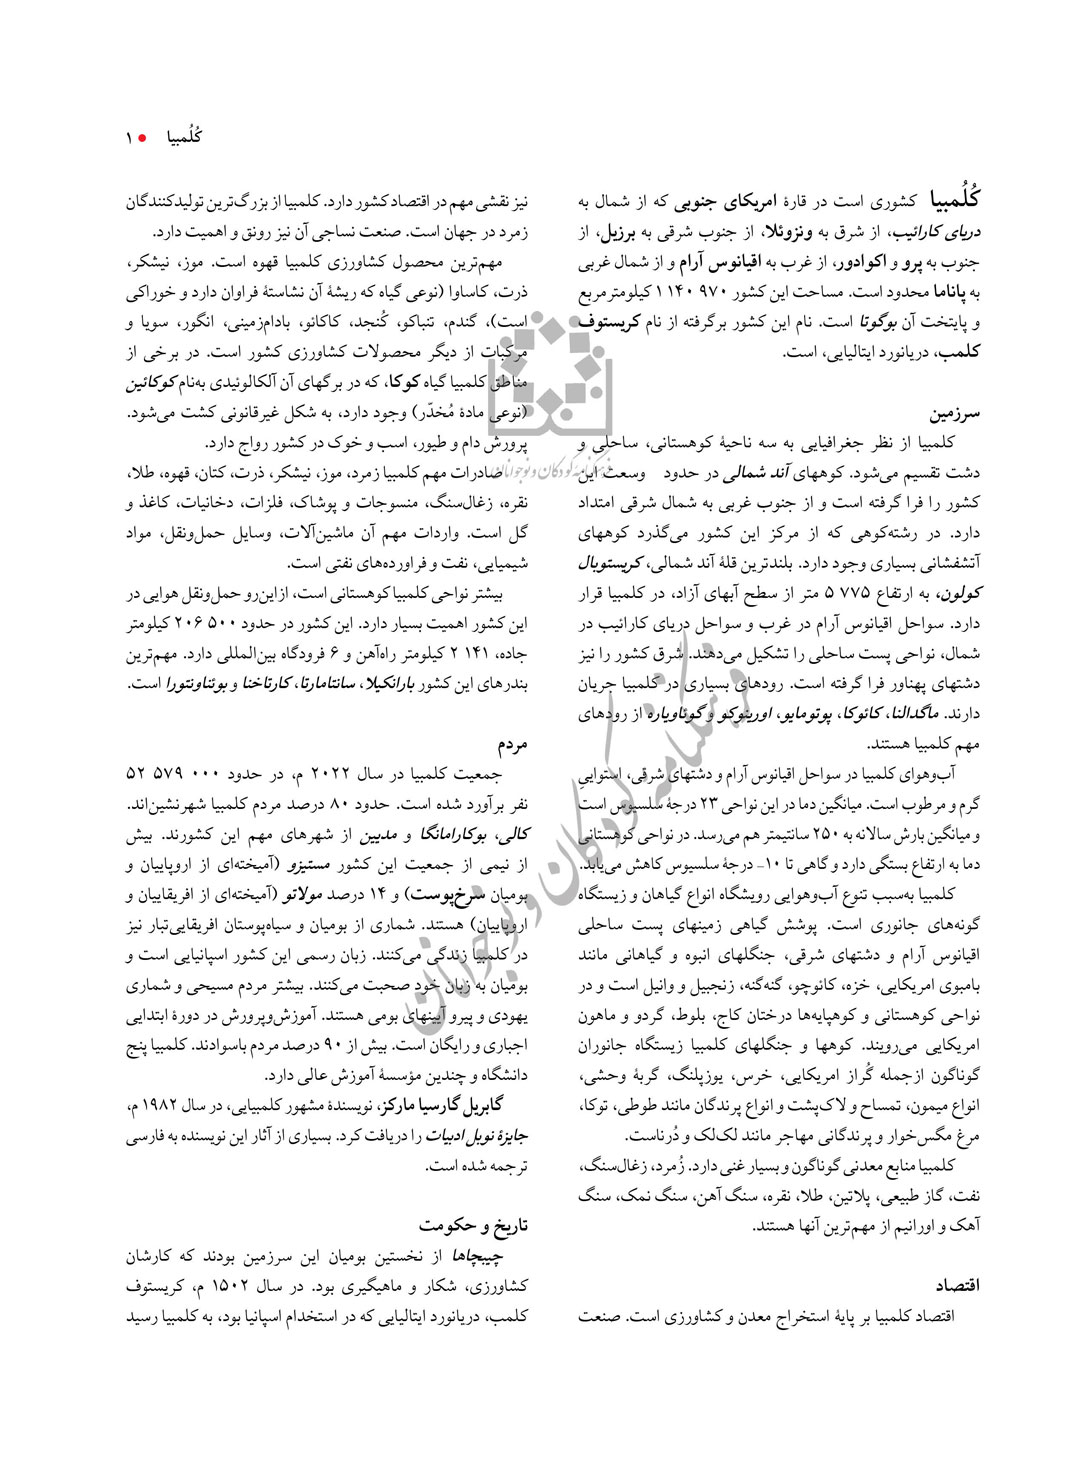 کُلُمبیا ● ۱
کُلُمبیا کشوری است در قارهٔ امریکای جنوبی که از شمال به
دریای کارائیب، از شرق به ونزوئلا، از جنوب شرقی به برزیل، از
جنوب به پرو و اکوادور، از غرب به اقیانوس آرام و از شمال غربی
به پاناما محدود است. مساحت این کشور ۹۷۰ ۱۴۰ ۱ کیلومترمربع
و پایتخت آن بوگوتا است. نام این کشور برگرفته از نام کریستوف
کلمب، دریانورد ایتالیایی، است.
سرزمین
کلمبیا از نظر جغرافیایی به سه ناحیهٔ کوهستانی، ساحلی و
دشت تقسیم می‌شود. کوههای آند شمالی در حدود وسعت این
کشور را فرا گرفته است و از جنوب غربی به شمال شرقی امتداد
دارد. در رشته‌کوهی که از مرکز این کشور می‌گذرد کوههای
آتشفشانی بسیاری وجود دارد. بلندترین قلهٔ آند شمالی، کریستوبال
کولون، به ارتفاع ۷۷۵ ۵ متر از سطح آبهای آزاد، در کلمبیا قرار
دارد. سواحل اقیانوس آرام در غرب و سواحل دریای کارائیب در
شمال، نواحی پست ساحلی را تشکیل می‌دهند. شرق کشور را نیز
دشتهای پهناور فرا گرفته است. رودهای بسیاری در کلمبیا جریان
دارند. ماگدالنا، کائوکا، پوتومایو، اورینوکو و گوئاویاره از رودهای
مهم کلمبیا هستند.
آب‌وهوای کلمبیا در سواحل اقیانوس آرام و دشتهای شرقی، استواییِ
گرم و مرطوب است. میانگین دما در این نواحی ۲۳ درجهٔ سلسیوس است
و میانگین بارش سالانه به ۲۵۰ سانتیمتر هم می‌رسد. در نواحی کوهستانی
دما به ارتفاع بستگی دارد و گاهی تا ۱۰- درجهٔ سلسیوس کاهش می‌یابد.
کلمبیا به‌سبب تنوع آب‌وهوایی رویشگاه انواع گیاهان و زیستگاه
گونه‌های جانوری است. پوشش گیاهی زمینهای پست ساحلی
اقیانوس آرام و دشتهای شرقی، جنگلهای انبوه و گیاهانی مانند
بامبوی امریکایی، خزه، کائوچو، گنه‌گنه، زنجبیل و وانیل است و در
نواحی کوهستانی و کوهپایه‌ها درختان کاج، بلوط، گردو و ماهون
امریکایی می‌رویند. کوهها و جنگلهای کلمبیا زیستگاه جانوران
گوناگون ازجمله گُراز امریکایی، خرس، یوزپلنگ، گربهٔ وحشی،
انواع میمون، تمساح و لاک‌پشت و انواع پرندگان مانند طوطی، توکا،
مرغ مگس‌خوار و پرندگانی مهاجر مانند لک‌لک و دُرناست.
کلمبیا منابع معدنی گوناگون و بسیار غنی دارد. زُمرد، زغال‌سنگ،
نفت، گاز طبیعی، پلاتین، طلا، نقره، سنگ آهن، سنگ نمک، سنگ
آهک و اورانیم از مهم‌ترین آنها هستند.
اقتصاد
اقتصاد کلمبیا بر پایهٔ استخراج معدن و کشاورزی است. صنعت
نیز نقشی مهم در اقتصاد کشور دارد. کلمبیا از بزرگ‌ترین تولیدکنندگان
زمرد در جهان است. صنعت نساجی آن نیز رونق و اهمیت دارد.
مهم‌ترین محصول کشاورزی کلمبیا قهوه است. موز، نیشکر،
ذرت، کاساوا (نوعی گیاه که ریشهٔ آن نشاستهٔ فراوان دارد و خوراکی
است)، گندم، تنباکو، کُنجد، کاکائو، بادام‌زمینی، انگور، سویا و
مرکبات از دیگر محصولات کشاورزی کشور است. در برخی از
مناطق کلمبیا گیاه کوکا، که در برگهای آن آلکالوئیدی به‌نام کوکائین
(نوعی مادهٔ مُخدّر) وجود دارد، به شکل غیرقانونی کشت می‌شود.
پرورش دام و طیور، اسب و خوک در کشور رواج دارد.
صادرات مهم کلمبیا زمرد، موز، نیشکر، ذرت، کتان، قهوه، طلا،
نقره، زغال‌سنگ، منسوجات و پوشاک، فلزات، دخانیات، کاغذ و
گل است. واردات مهم آن ماشین‌آلات، وسایل حمل‌ونقل، مواد
شیمیایی، نفت و فراورده‌های نفتی است.
بیشتر نواحی کلمبیا کوهستانی است، ازاین‌رو حمل‌ونقل هوایی در
این کشور اهمیت بسیار دارد. این کشور در حدود ۵۰۰ ۲۰۶ کیلومتر
جاده، ۱۴۱ ۲ کیلومتر راه‌آهن و ۶ فرودگاه بین‌المللی دارد. مهم‌ترین
بندرهای این کشور بارانکیلا، سانتامارتا، کارتاخنا و بوئناونتورا است.
مردم
جمعیت کلمبیا در سال ۲۰۲۲ م، در حدود ۰۰۰ ۵۷۹ ۵۲
نفر برآورد شده است. حدود ۸۰ درصد مردم کلمبیا شهرنشین‌اند.
کالی، بوکارامانگا و مدیین از شهرهای مهم این کشورند. بیش
از نیمی از جمعیت این کشور مستیزو (آمیخته‌ای از اروپاییان و
بومیان سرخ‌پوست) و ۱۴ درصد مولاتو (آمیخته‌ای از افریقاییان و
اروپاییان) هستند. شماری از بومیان و سیاه‌پوستان افریقایی‌تبار نیز
در کلمبیا زندگی می‌کنند. زبان رسمی این کشور اسپانیایی است و
بومیان به زبان خود صحبت می‌کنند. بیشتر مردم مسیحی و شماری
یهودی و پیرو آیینهای بومی هستند. آموزش‌وپرورش در دورهٔ ابتدایی
اجباری و رایگان است. بیش از ۹۰ درصد مردم باسوادند. کلمبیا پنج
دانشگاه و چندین مؤسسهٔ آموزش عالی دارد.
گابریل گارسیا مارکز، نویسندهٔ مشهور کلمبیایی، در سال ۱۹۸۲ م،
جایزهٔ نوبل ادبیات را دریافت کرد. بسیاری از آثار این نویسنده به فارسی
ترجمه شده است.
تاریخ و حکومت
چیبچاها از نخستین بومیان این سرزمین بودند که کارشان
کشاورزی، شکار و ماهیگیری بود. در سال ۱۵۰۲ م، کریستوف
کلمب، دریانورد ایتالیایی که در استخدام اسپانیا بود، به کلمبیا رسید
فرهنگنامه کودکان و نوجوانان
فرهنگنامه کودکان و نوجوانان